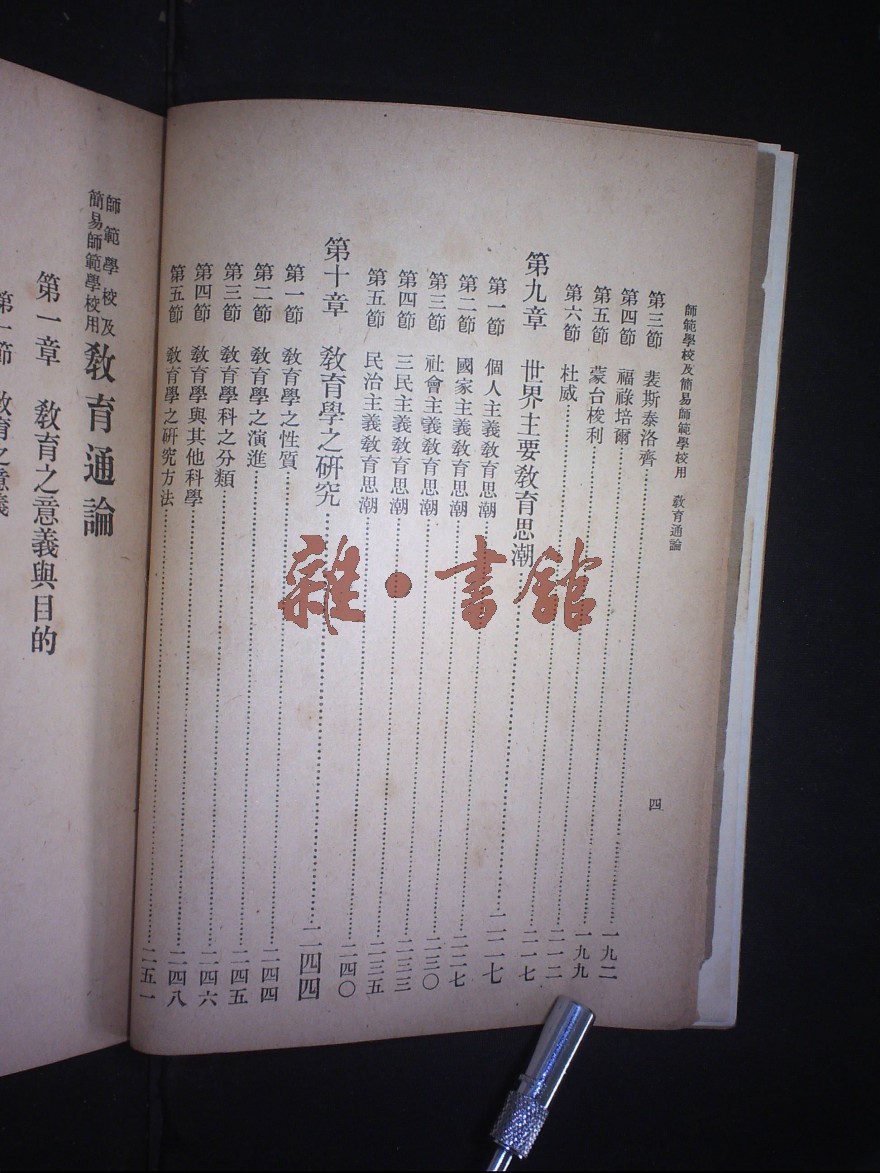 師範學校及簡易師範學校用　教育通論
四
第三節　裴斯泰洛齊……一九二
第四節　福祿培爾……一九九
第五節　蒙台梭利……二一二
第六節　杜威……二一七
第九章　世界主要教育思潮……二二七
第一節　個人主義教育思潮……二二七
第二節　國家主義教育思潮……二三〇
第三節　社會主義教育思潮……二三三
第四節　三民主義教育思潮……二三五
第五節　民治主義教育思潮……二四〇
第十章　教育學之研究……二四四
第一節　教育學之性質……二四四
第二節　教育學之演進……二四五
第三節　教育學科之分類……二四六
第四節　教育學與其他科學……二四八
第五節　教育學之研究方法……二五一
師範學校及
簡易師範學校用
教育通論
第一章　教育之意義與目的
第一節　教育之意義
雜·書館